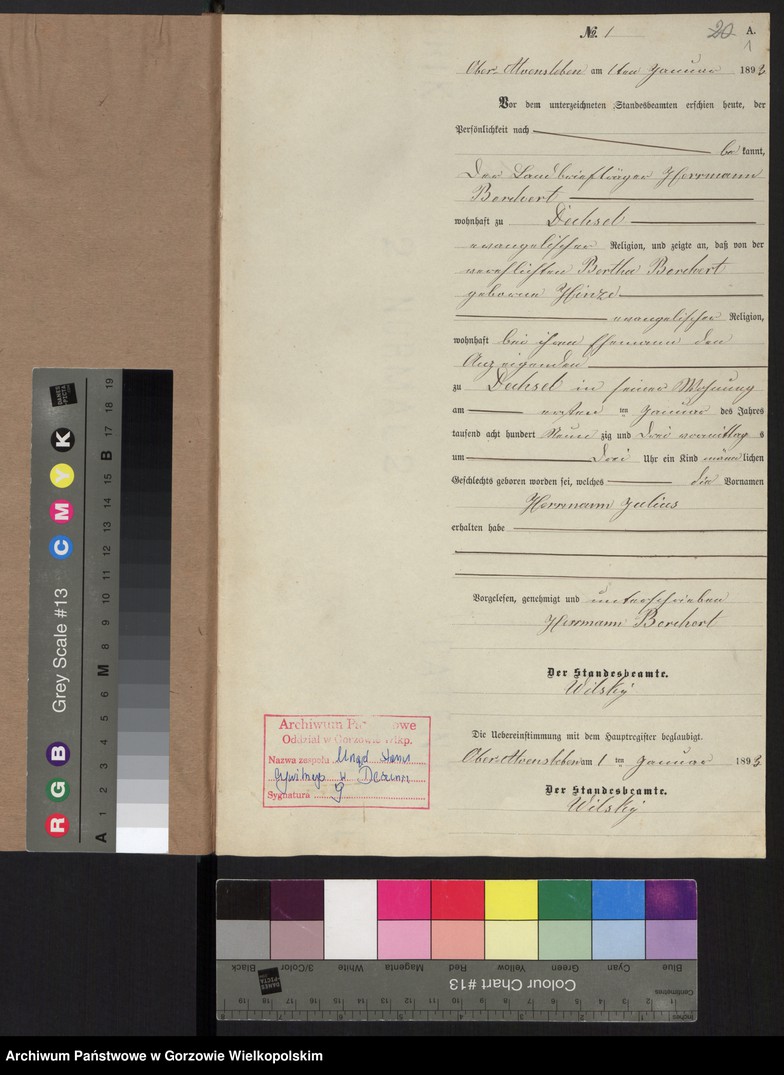 №. 1
20 A.
1
Ober-Alvensleben am 1ten Januar 1893
Vor dem unterzeichneten Standesbeamten erschien heute, der
Persönlichkeit nach
bekannt,
Der Landbriefträger Herrmann
Borchert
wohnhaft zu Dechsel
evangelischer Religion, und zeigte an, daß von der
verehlichten Bertha Borchert
geborene Hinze
evangelischer Religion,
wohnhaft bei ihrem Ehemann den
Anzeigenden
zu Dechsel in seiner Wohnung
am ersten ten Januar des Jahres
tausend acht hundert Neunzig und Drei vormittags
um Drei Uhr ein Kind männlichen
Geschlechts geboren worden sei, welches die Vornamen
Herrmann Julius
erhalten habe
Vorgelesen, genehmigt und unterschrieben
Herrmann Borchert
Der Standesbeamte.
Wilsky
Die Uebereinstimmung mit dem Hauptregister beglaubigt.
Ober-Alvensleben am 1 ten Januar 1893
Der Standesbeamte.
Wilsky
Archiwum Pa we
Oddział w Gorzowie Wlkp.
Nazwa zespołu Urząd stanu
cywilnego w
Sygnatura 9
Grey Scale #13
DANES PICTA
R G B C M Y K
A 1 2 3 4 5 6 M 8 9 10 11 12 13 14 15 B 17 18 19
Colour Chart #13
DANES PICTA
Blue Cyan Green Yellow Red Magenta White 3/Color Black
Centimetres
1 2 3 4 5 6 7 8 9 10 11 12 13 14 15 16 17 18 19
Inches
Archiwum Państwowe w Gorzowie Wielkopolskim